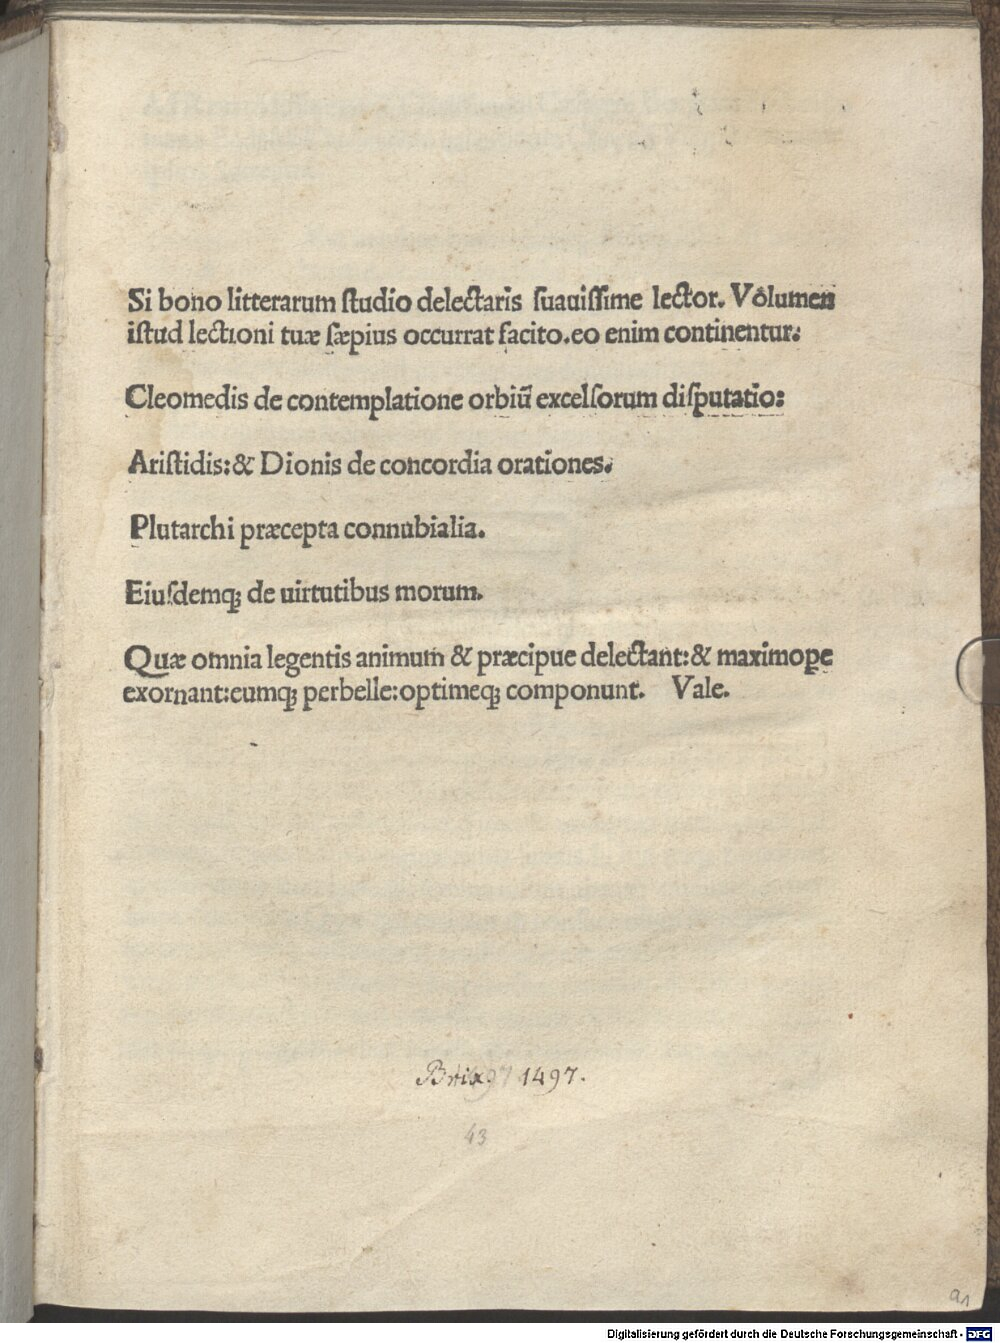 Si bono litterarum ſtudio delectaris ſuauiſſime lector. Volumen
iſtud lectioni tuæ ſæpius occurrat facito. eo enim continentur:
Cleomedis de contemplatione orbiū excelſorum diſputatio:
Ariſtidis: & Dionis de concordia orationes.
Plutarchi præcepta connubialia.
Eiuſdemq; de uirtutibus morum.
Quæ omnia legentis animum & præcipue delectant: & maximope
exornant: eumq; perbelle: optimeq; componunt. Vale.
Brix. 1497.
43
a1
Digitalisierung gefördert durch die Deutsche Forschungsgemeinschaft - DFG